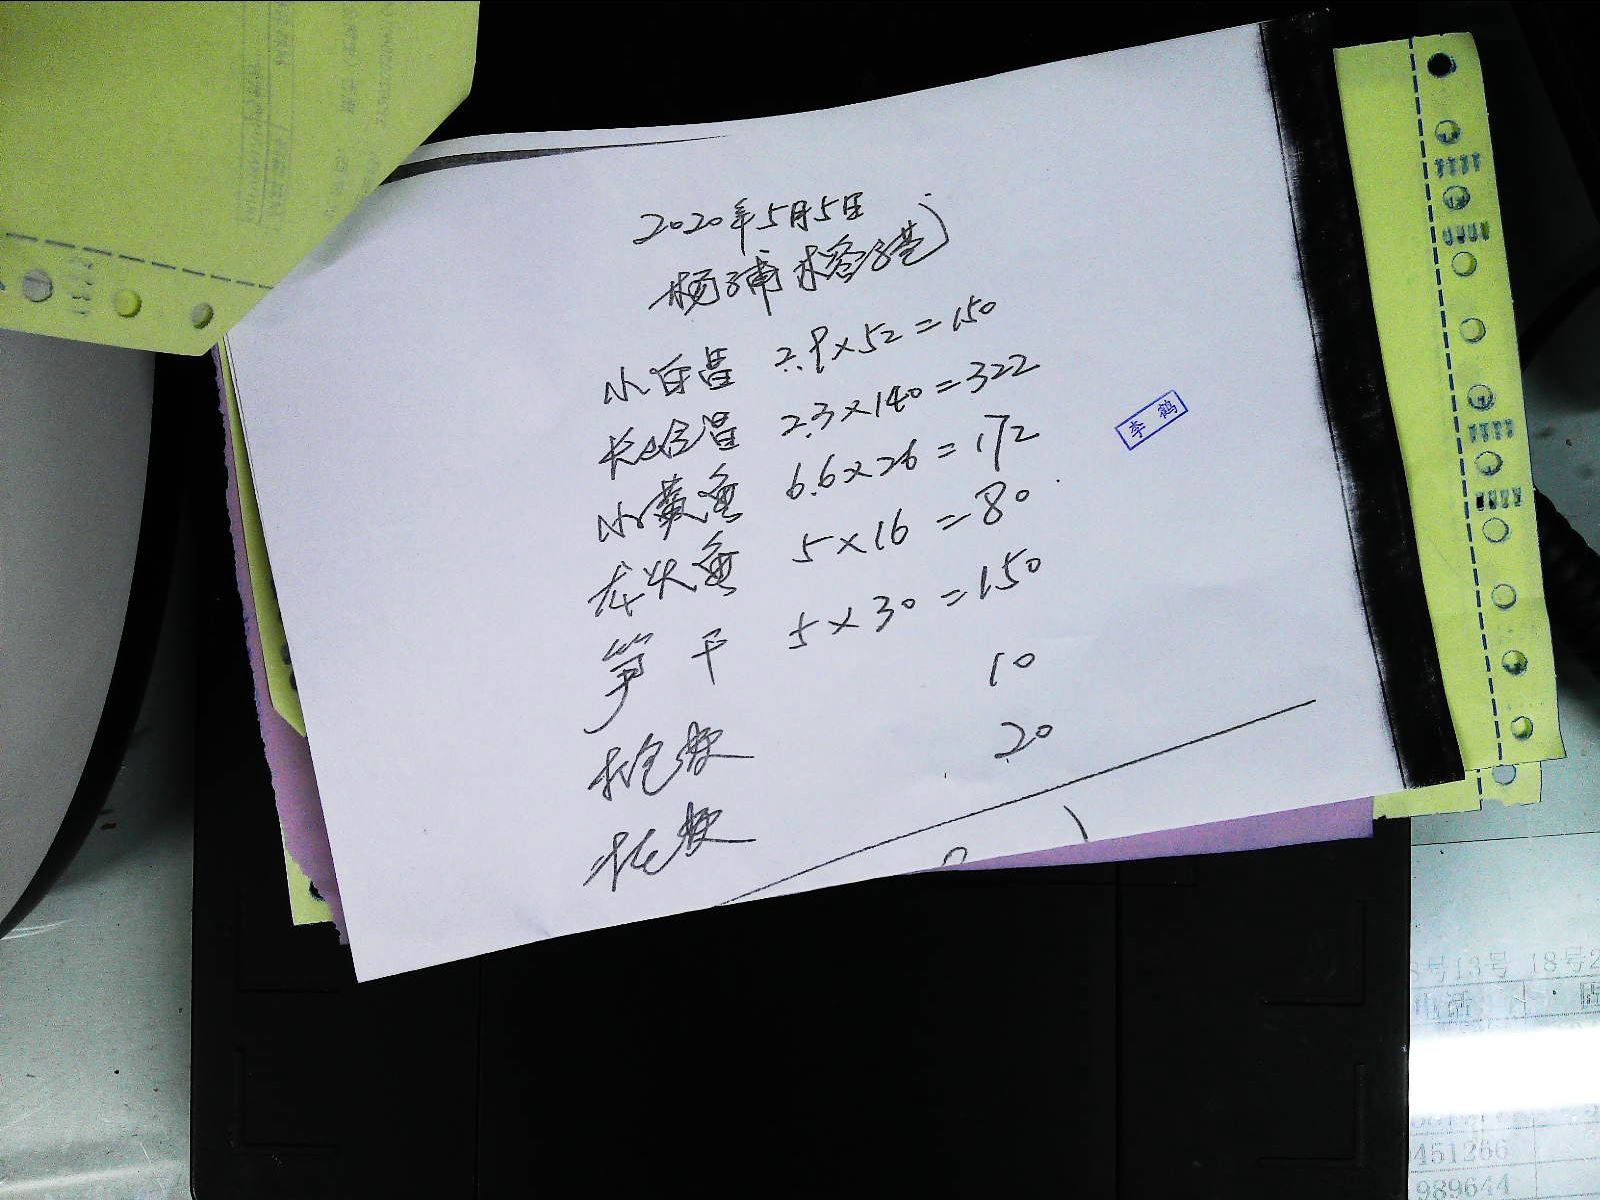 2020年5月5日
杨浦榕港
小白鲳 2.9×52=150
长白鲳 2.3×140=322
小黄鱼 6.6×26=172
龙头鱼 5×16=80
笋干 5×30=150
10
20
李鹤
8号13号 18号2
电话
451266
989644